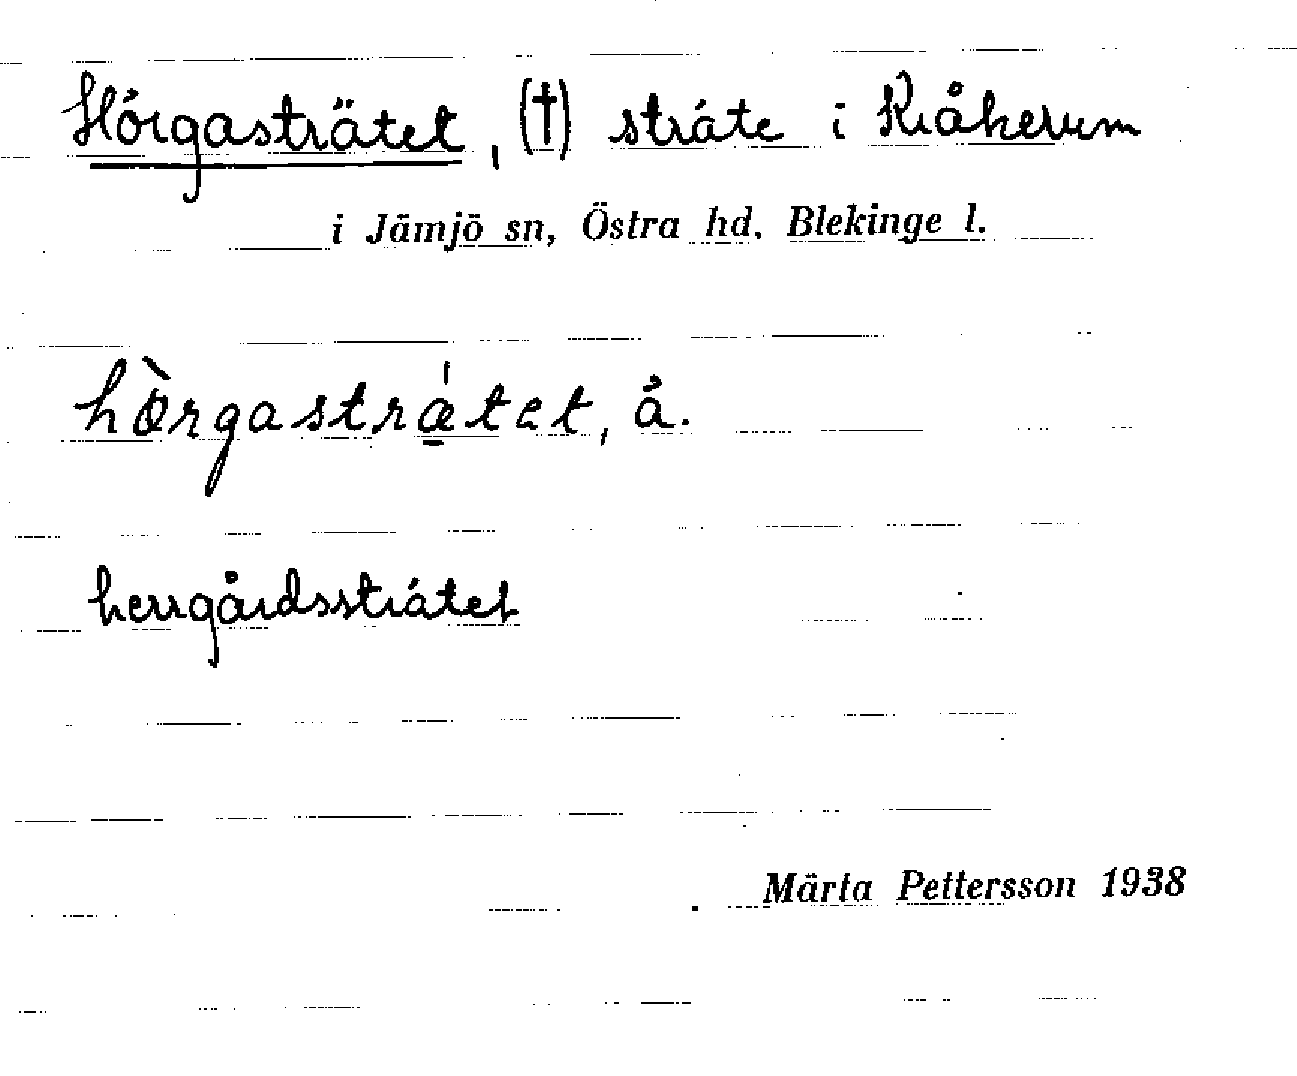 Hörgasträtet, (†) stråte i Kråkerum
i Jämjö sn, Östra hd. Blekinge l.
hòrgastrǽtet, å.
herrgårdsstråtet
Märta Pettersson 1938